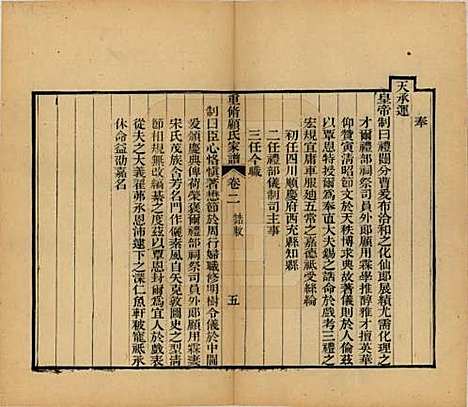 奉
天承運
皇帝制曰禮闈分曹爰布洽和之化仙郎展績尤需化理之
才爾禮部祠祭司員外郎顧用霖學推醇雅才擅英華
仰贊寅清昭節文於天秩博求典故著儀則於人倫茲
以覃恩特授爾為奉直大夫錫之誥命於戲考三禮之
宏規宜庸車服廸五常之嘉德祗受絲綸
初任四川順慶府西充縣知縣
二任禮部儀制司主事
三任今職
重修顧氏家譜 卷二 誥敕 五
制曰臣心恪慎著懋節於周行婦職修明樹令儀於中閫
爰襄慶典俾荷榮褒爾禮部祠祭司員外郎顧用霖妻
宋氏茂族含芳名門作儷素風自矢克敦圖史之型清
節無渝式佩珩璜之度茲以覃恩封爾為宜人於戲表
從夫之大義翟茀承恩沛逮下之深仁魚軒被寵祗承
休命益劭嘉名